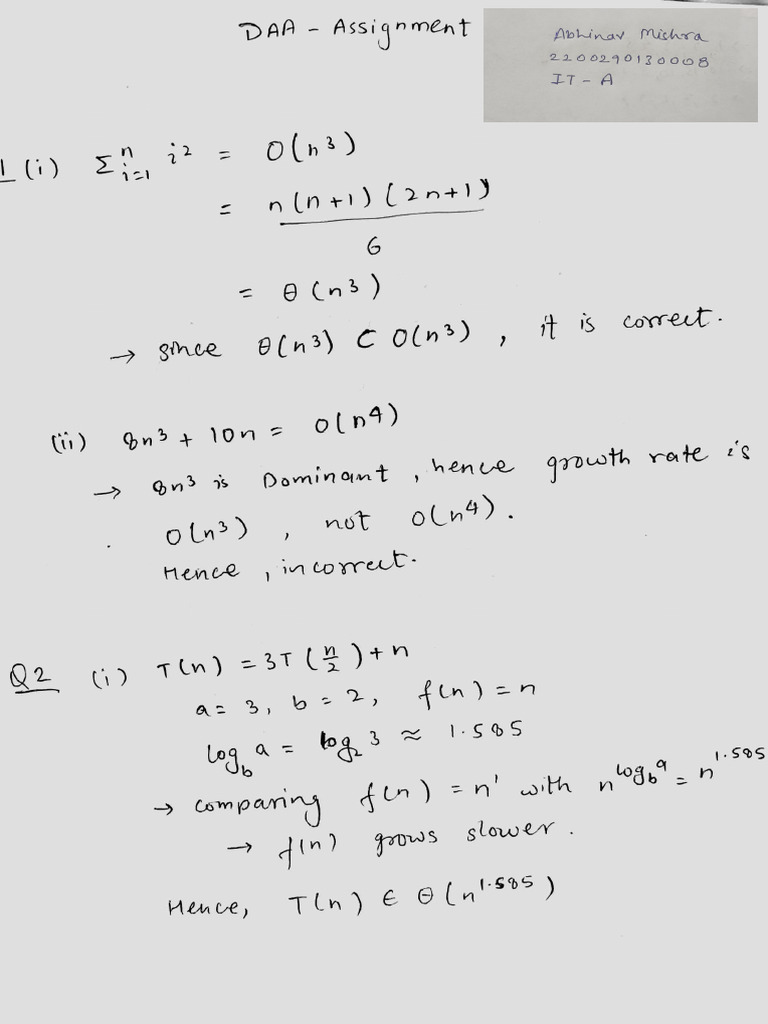 DAA - Assignment
Abhinav Mishra
2200290130008
IT - A
1 (i) Σⁿᵢ₌₁ i² = O(n³)
= n(n+1)(2n+1)
6
= θ(n³)
→ since θ(n³) ⊂ O(n³), it is correct.
(ii) 8n³ + 10n = O(n⁴)
→ 8n³ is Dominant, hence growth rate is
O(n³), not O(n⁴).
Hence, incorrect.
Q2 (i) T(n) = 3T(n/2) + n
a = 3, b = 2, f(n) = n
log_b a = log₂ 3 ≈ 1.585
→ comparing f(n) = n¹ with n^(log_b a) = n^1.585
→ f(n) grows slower.
Hence, T(n) ∈ θ(n^1.585)